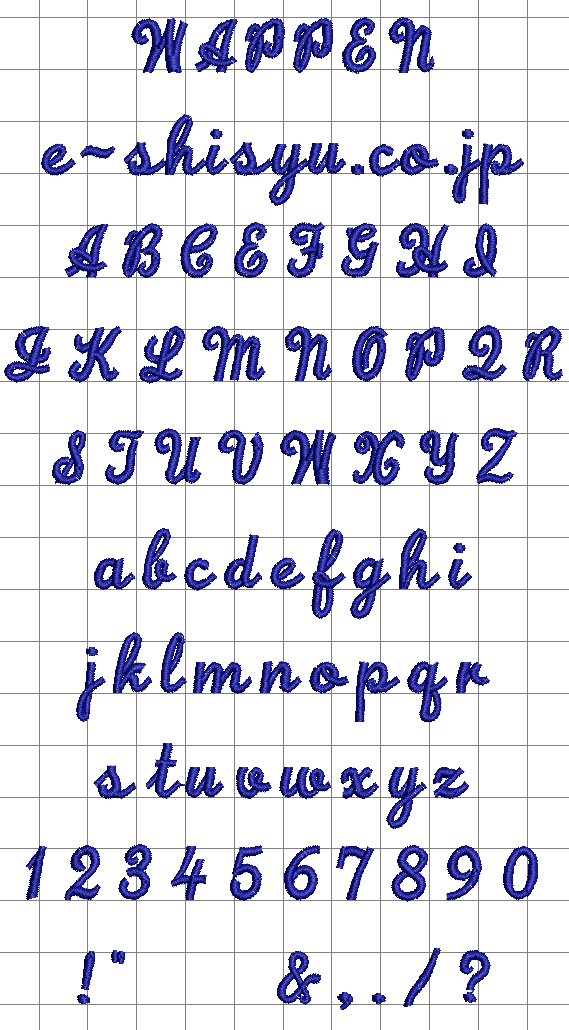 WAPPEN
e~shisyu.co.jp
ABCEFGHI
JKLMNOPQR
STUVWXYZ
abcdefghi
jklmnopqr
stuvwxyz
1234567890
!" &,./?